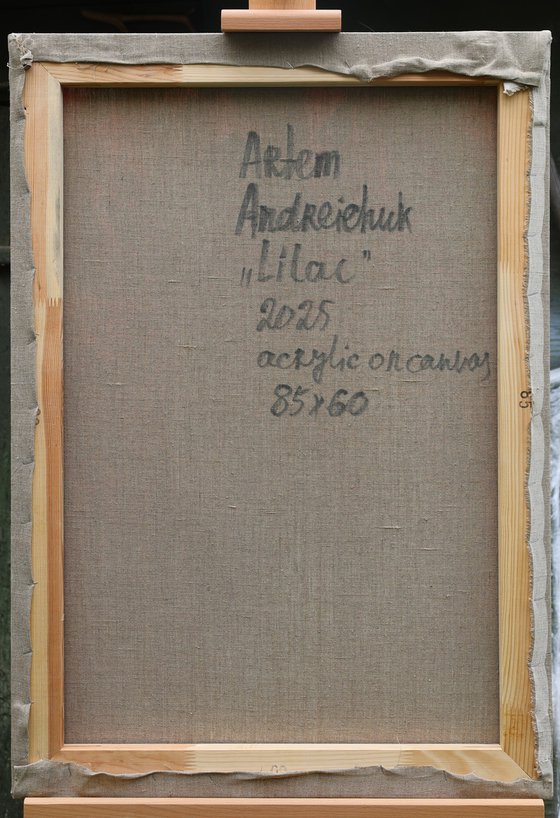 Artem
Andreichuk
„Lilac"
2025
acrylic on canvas
85x60
85